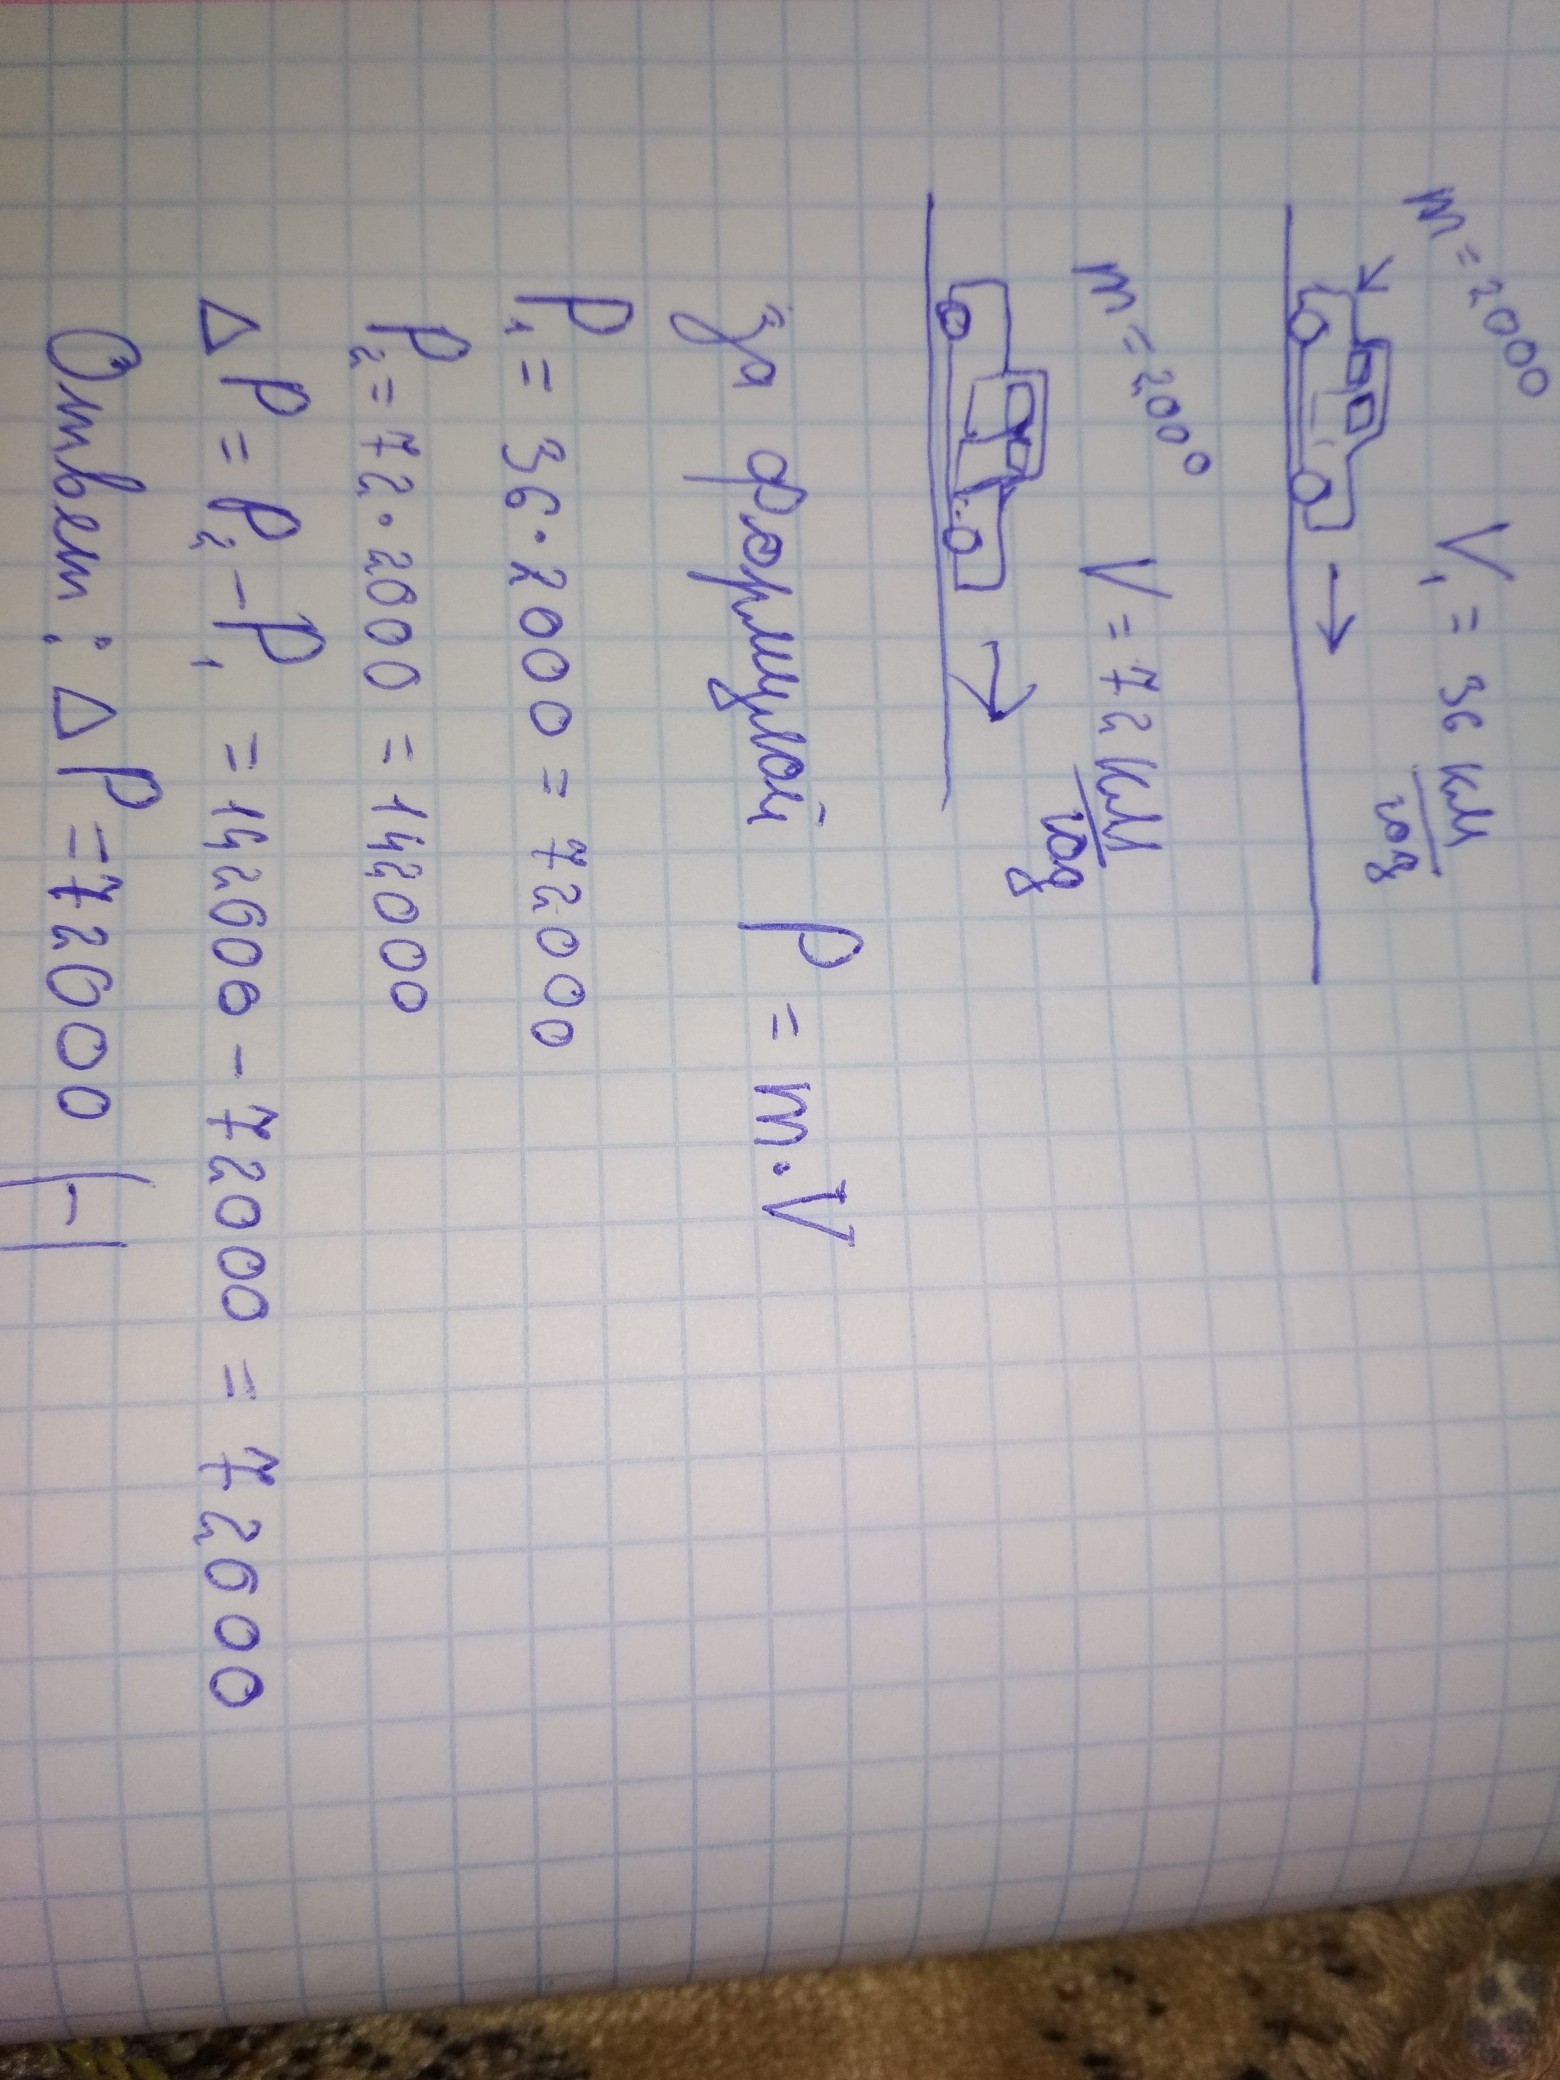 m = 2000 V₁ = 36 км/год
m = 2000 V = 72 км/год
За формулой P = m · V
P₁ = 36 · 2000 = 72000
P₂ = 72 · 2000 = 142000
Δ P = P₂ - P₁ = 142000 - 72000 = 72000
Ответ : Δ P = 72000